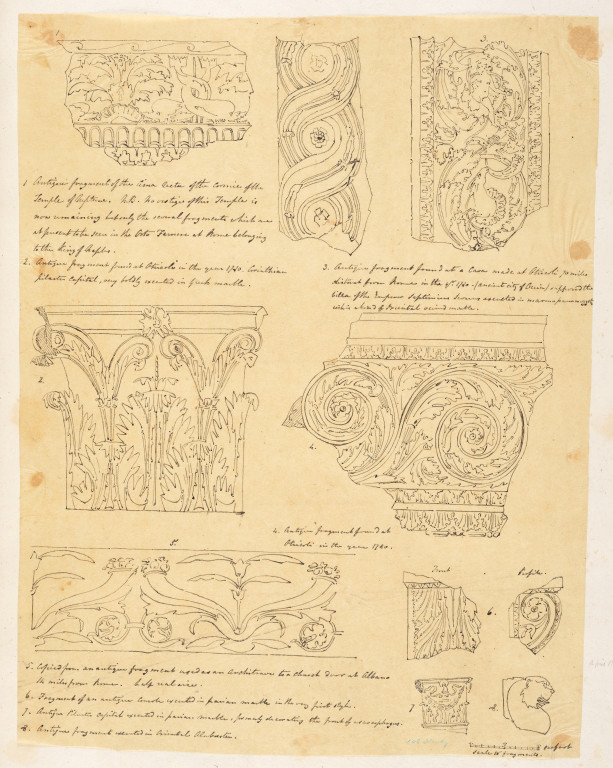 1 Antique fragment of the Cima Recta of the Cornice of the
Temple of Neptune. N.B. No vestige of this Temple is
now remaining but only the several fragments which are
at present to be seen in the Orto Farnese at Rome belonging
to the King of Naples.
2. Antique fragment found at Otricoli in the year 1780. Corinthian
pilaster Capital, very boldly executed in Greek marble.
3. Antique fragment found at a Cava made at Otricoli 30 miles
distant from Rome in the yr. 1780. (ancient city of Ocria) supposed the
Villa of the Emperor Septimius Severus executed in
which is a kind of Oriental veined marble.
2.
4.
4. Antique fragment found at
Otricoli in the year 1780.
5.
Front
Profile.
6.
5. Copied from an antique fragment used as an Architrave to a church door at Albano
14 miles from Rome. half nat. size.
6. Fragment of an antique Console executed in parian marble in the very first style.
7. Antique Pilaster Capital executed in parian marble, formerly decorating the front of a sarcophagus.
8. Antique fragment executed in Oriental Alabaster.
7
8.
one foot
Scale to fragments.